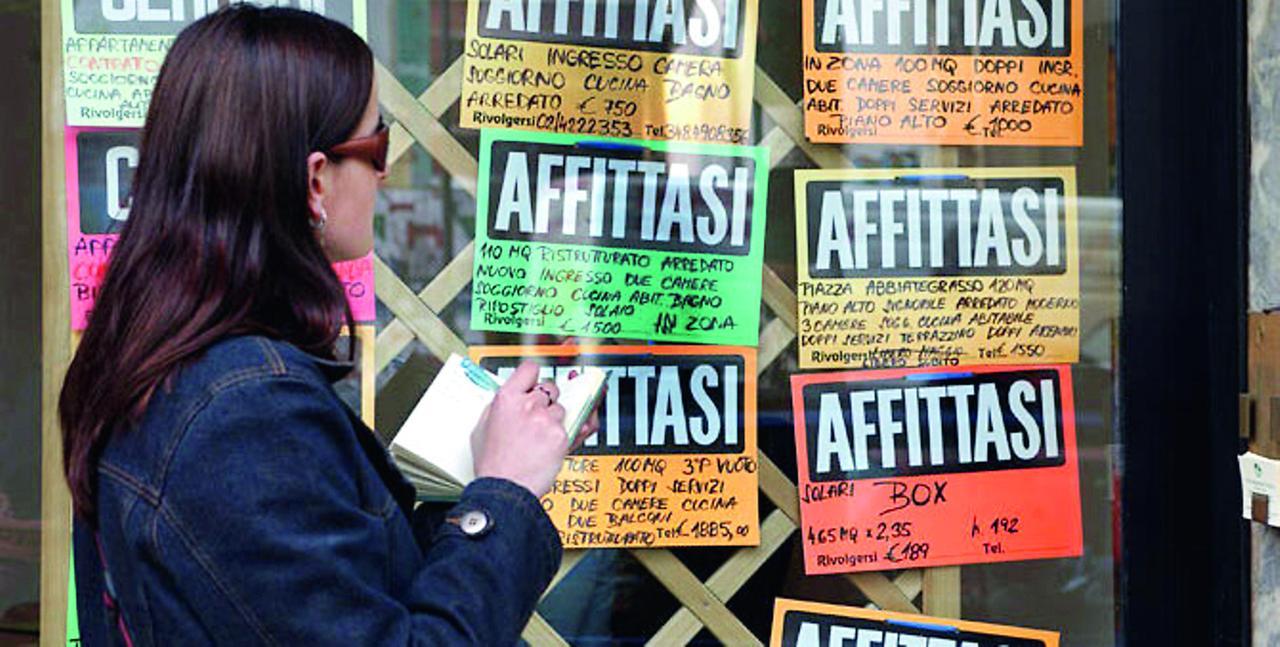 APPARTAMEN
CONTRATTO
SOGGIORNO
CUCINA AB
Rivolgersi
C
AFFITTASI
SOLARI INGRESSO CAMERA
SOGGIORNO CUCINA BAGNO
ARREDATO € 750
Rivolgersi 02/4222353 Tel.
AFFITTASI
110 MQ RISTRUTTURATO ARREDATO
NUOVO INGRESSO DUE CAMERE
SOGGIORNO CUCINA ABIT. BAGNO
RIPOSTIGLIO SOLAIO
Rivolgersi € 1500 IN ZONA
TTASI
TORE 100 MQ 3°P VUOTO
RESSI DOPPI SERVIZI
O DUE CAMERE CUCINA
DUE BALCONI
RISTRUTTURATO Tel. € 1885,00
AFFITTASI
IN ZONA 100 MQ DOPPI INGR.
DUE CAMERE SOGGIORNO CUCINA
ABIT. DOPPI SERVIZI ARREDATO
PIANO ALTO € 1000
Rivolgersi Tel.
AFFITTASI
PIAZZA ABBIATEGRASSO 120 MQ
PIANO ALTO SIGNORILE ARREDATO MODERNO
3 CAMERE SOGG. CUCINA ABITABILE
DOPPI SERVIZI TERRAZZINO DOPPI
Rivolgersi Tel. € 1550
LIBERO SUBITO
AFFITTASI
SOLARI BOX
465 MQ x 2,35 h. 192
Rivolgersi € 189 Tel.
AFFITTASI